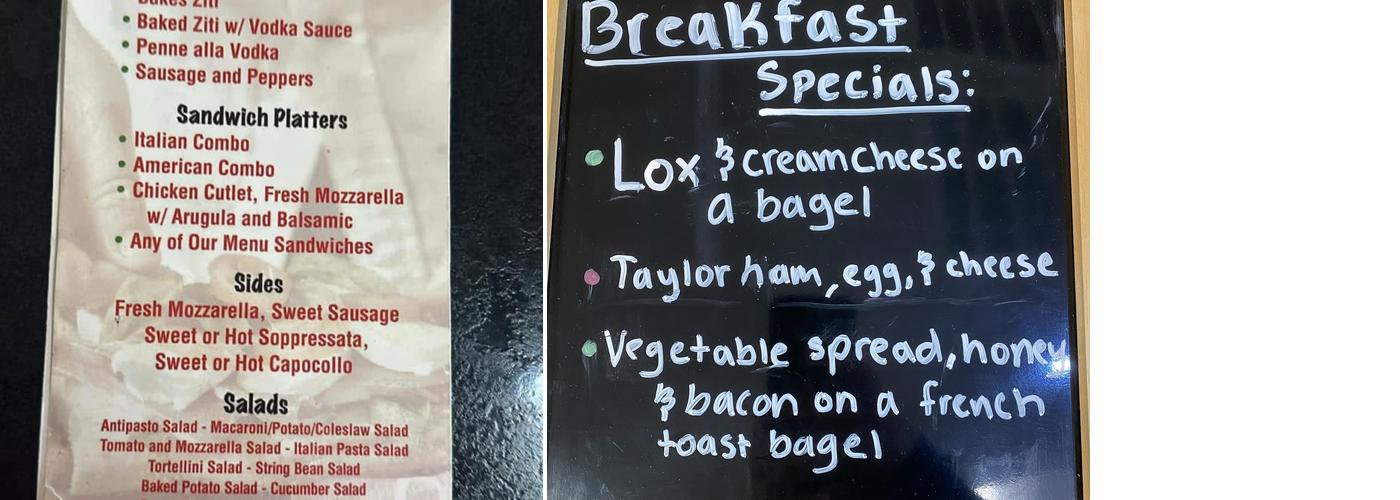 Bakes Ziti
Baked Ziti w/ Vodka Sauce
Penne alla Vodka
Sausage and Peppers
Sandwich Platters
Italian Combo
American Combo
Chicken Cutlet, Fresh Mozzarella
w/ Arugula and Balsamic
Any of Our Menu Sandwiches
Sides
Fresh Mozzarella, Sweet Sausage
Sweet or Hot Soppressata,
Sweet or Hot Capocollo
Salads
Antipasto Salad - Macaroni/Potato/Coleslaw Salad
Tomato and Mozzarella Salad - Italian Pasta Salad
Tortellini Salad - String Bean Salad
Baked Potato Salad - Cucumber Salad
Breakfast
Specials:
Lox & creamcheese on
a bagel
Taylor ham, egg, & cheese
Vegetable spread, honey
& bacon on a french
toast bagel